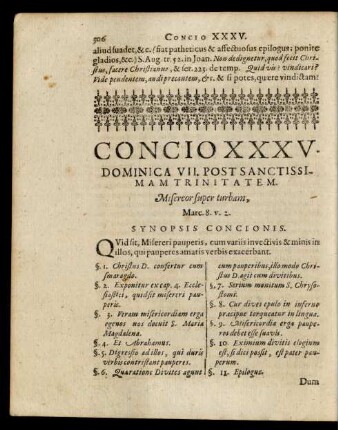 306 CONCIO XXXV.
aliud suadet, &c. (fiat patheticus & affectuosus epilogus: ponite
gladios, &c.) S. Aug. tr. 52. in Joan. Non dedignetur, quod fecit Chri-
stus, facere Christianus, & ser. 223. de temp. Quid vis? vindicari?
Vide pendentem, audi precantem, &c. & si potes, quære vindictam!
CONCIO XXXV.
DOMINICA VII. POST SANCTISSI-
MAM TRINITATEM.
Misereor super turbam,
Marc. 8. v. 2.
SYNOPSIS CONCIONIS.
QVid sit, Misereri pauperis, cum variis invectivis & minis in
illos, qui pauperes amatis verbis exacerbant.
§. 1. Christus D. confertur cum
smaragdo.
§. 2. Exponitur cap. 4. Eccle-
siastici, quid sit misereri paupe-
ris.
§. 3. Veram misericordiam erga
egenos nos docuit S. Maria
Magdalena.
§. 4. Et Abrahamus.
§. 5. Digressio ad illos, qui duris
verbis contristant pauperes.
§. 6. Qua ratione Divites agunt
cum pauperibus, illo modo Chri-
stus D. agit cum divitibus.
§. 7. Serium monitum S. Chryso-
stomi.
§. 8. Cur dives epulo in inferno
præcipue torqueatur in lingua.
§. 9. Misericordia erga paupe-
ros debet esse suavis.
§. 10. Eximium divitis elogium
est, si dici possit, est pater pau-
perum.
§. 11. Epilogus.
Dum